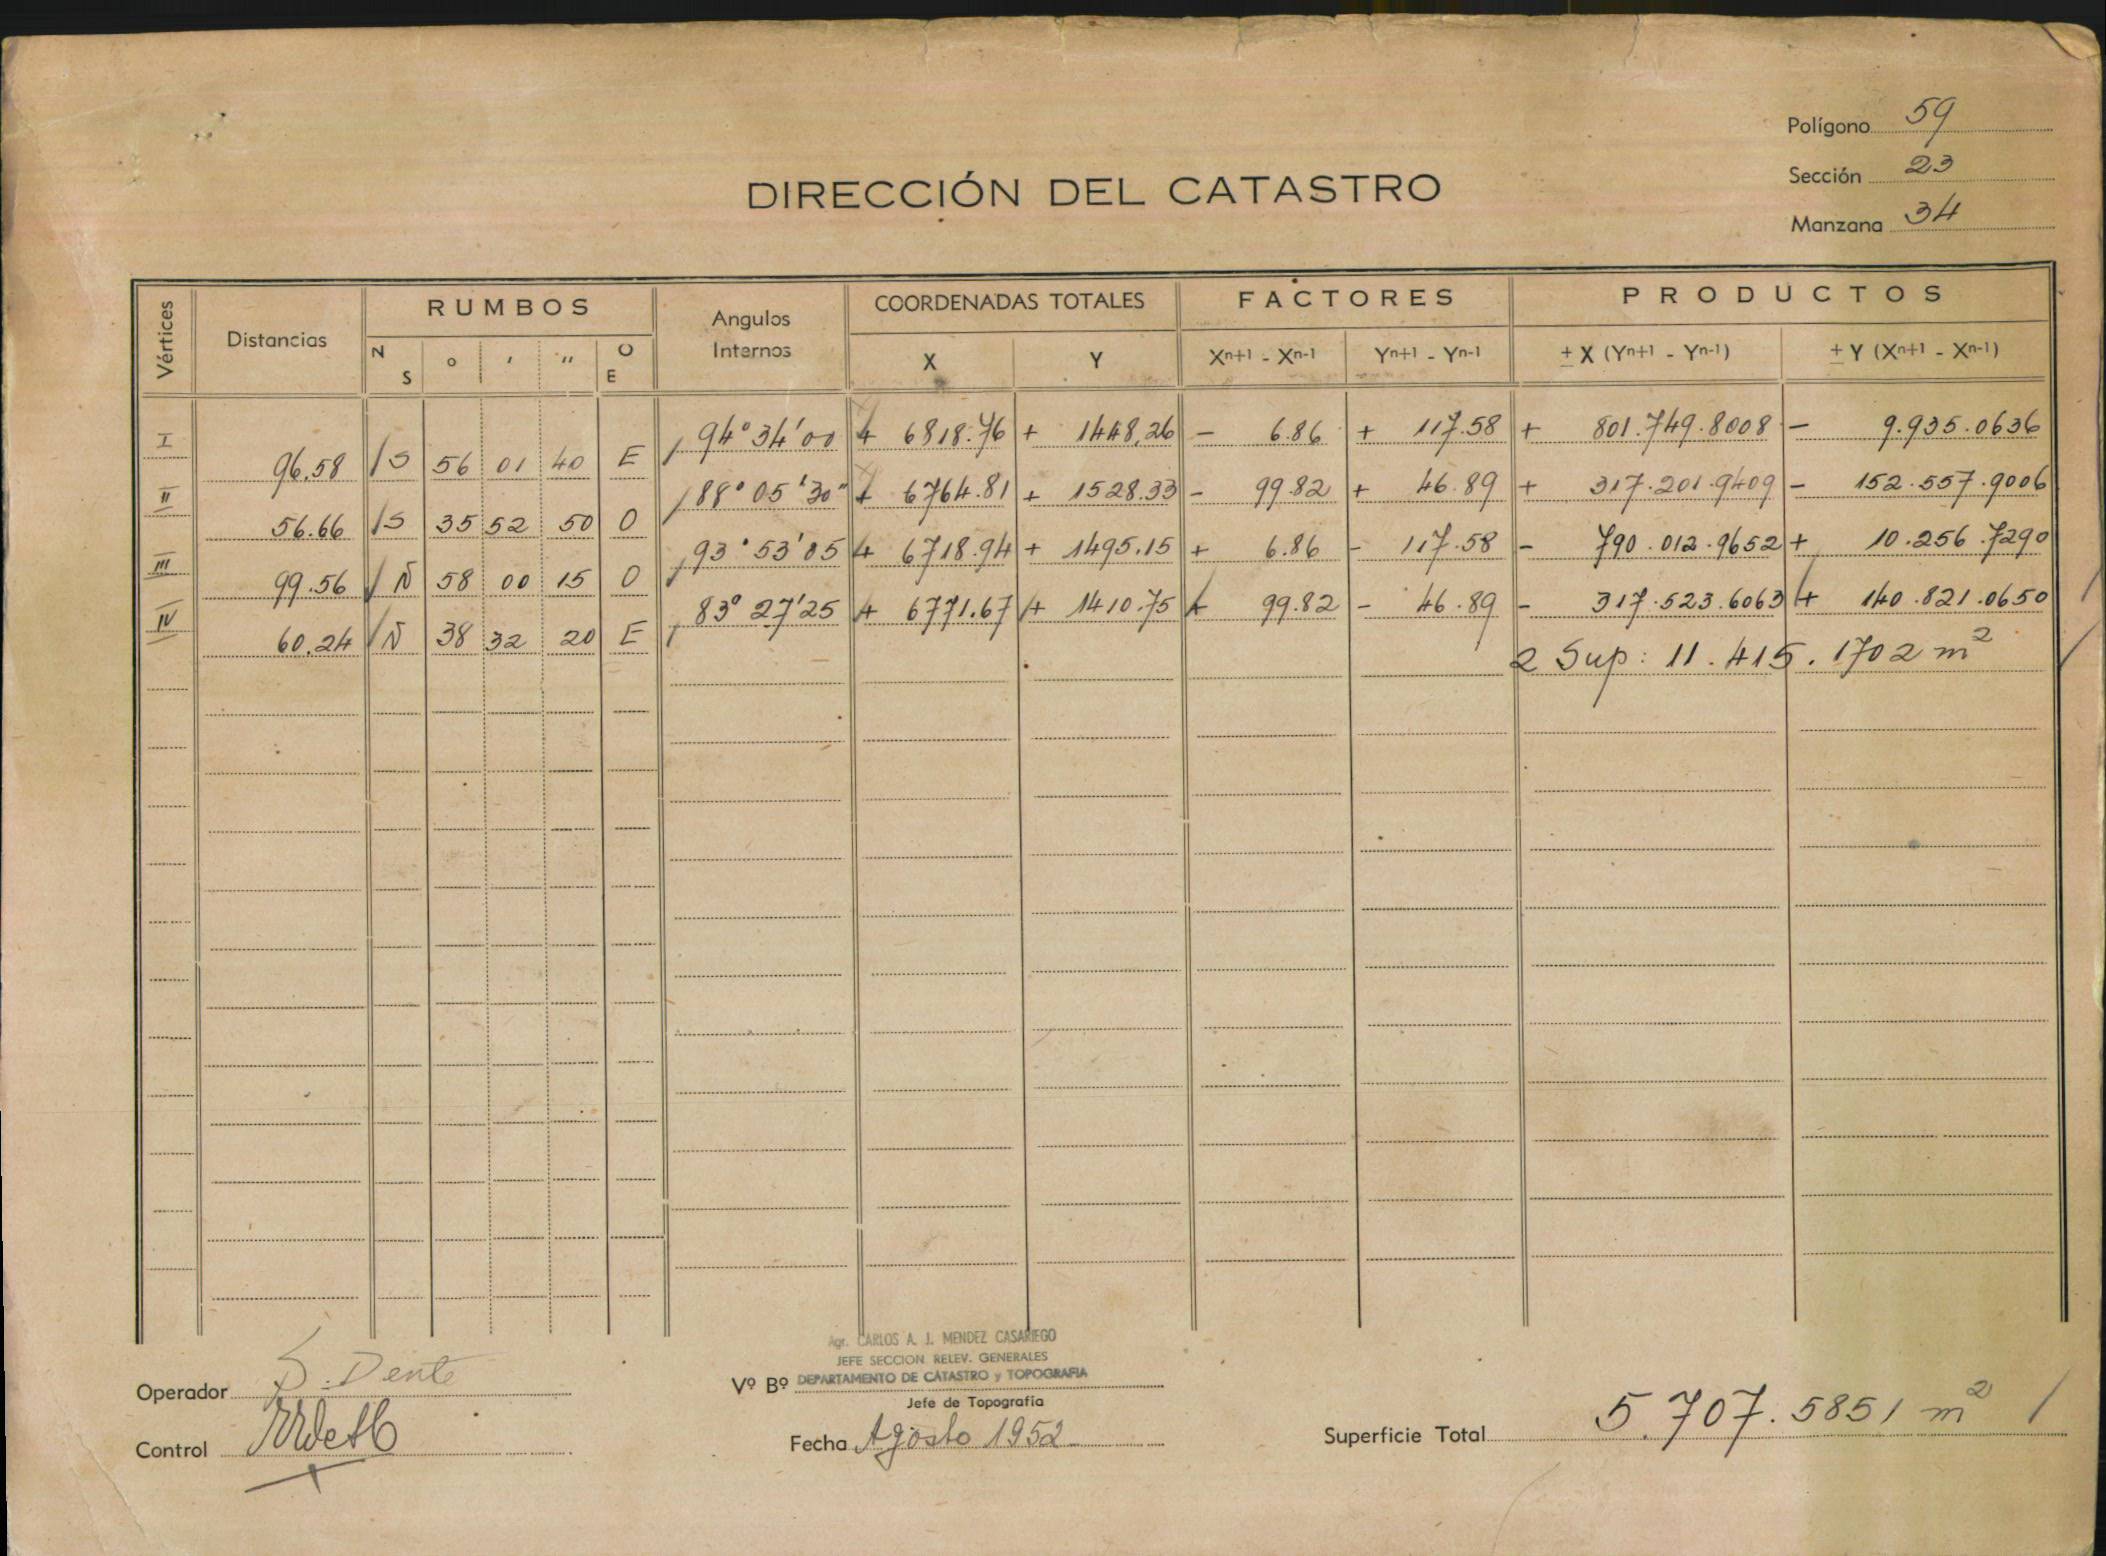 Polígono 59
Sección 23
Manzana 34
DIRECCIÓN DEL CATASTRO
Vértices Distancias RUMBOS Angulos Internos COORDENADAS TOTALES FACTORES PRODUCTOS
N S ° ' " O E X Y Xn+1 - Xn-1 Yn+1 - Yn-1 ± X (Yn+1 - Yn-1) ± Y (Xn+1 - Xn-1)
I 94° 34' 00 + 6818.76 + 1448,26 - 6.86 + 117.58 + 801.749.8008 - 9.935.0636
96.58 S 56 01 40 E
II 88° 05' 30" + 6764.81 + 1528.33 - 99.82 + 46.89 + 317.201.9409 - 152.557.9006
56.66 S 35 52 50 O
III 93° 53' 05 + 6718.94 + 1495.15 + 6.86 - 117.58 - 790.012.9652 + 10.256.7290
99.56 N 58 00 15 O
IV 83° 27' 25 + 6771.67 + 1410.75 + 99.82 - 46.89 - 317.523.6063 + 140.821.0650
60.24 N 38 32 20 E
2 Sup: 11.415.1702 m²
Agr. CARLOS A. J. MENDEZ CASARIEGO
JEFE SECCION RELEV. GENERALES
Operador S. Dente Vº Bº DEPARTAMENTO DE CATASTRO y TOPOGRAFIA
Jefe de Topografía
Control Fecha Agosto 1952 Superficie Total 5.707.5851 m²